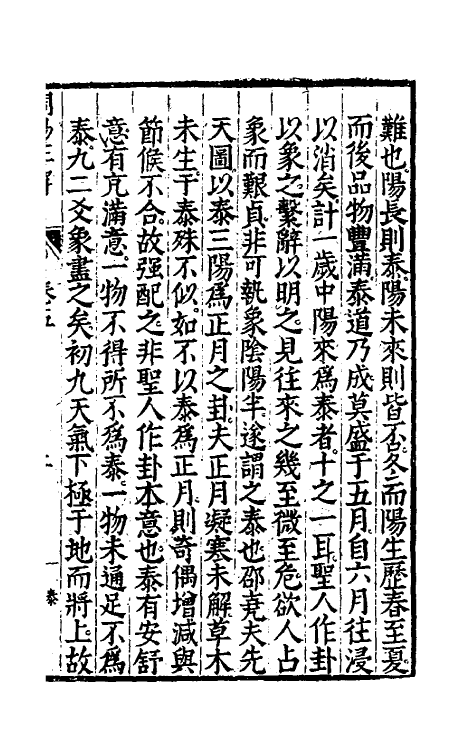 難也陽長則泰陽未來則皆否冬而陽生歷春至夏
而後品物豐滿泰道乃成莫盛于五月自六月往浸
以消矣計一歲中陽來爲泰者十之一耳聖人作卦
以象之繫辭以明之見往來之幾至微至危欲人占
象而艱貞非可執象陰陽半遂謂之泰也邵堯夫先
天圖以泰三陽爲正月之卦夫正月凝寒未解草木
未生于泰殊不似如不以泰爲正月則奇偶增減與
節候不合故强配之非聖人作卦本意也泰有安舒
意有亢滿意一物不得所不爲泰一物未通足不爲
泰九二爻象盡之矣初九天氣下極于地而將上故
周易正解
卷五
泰